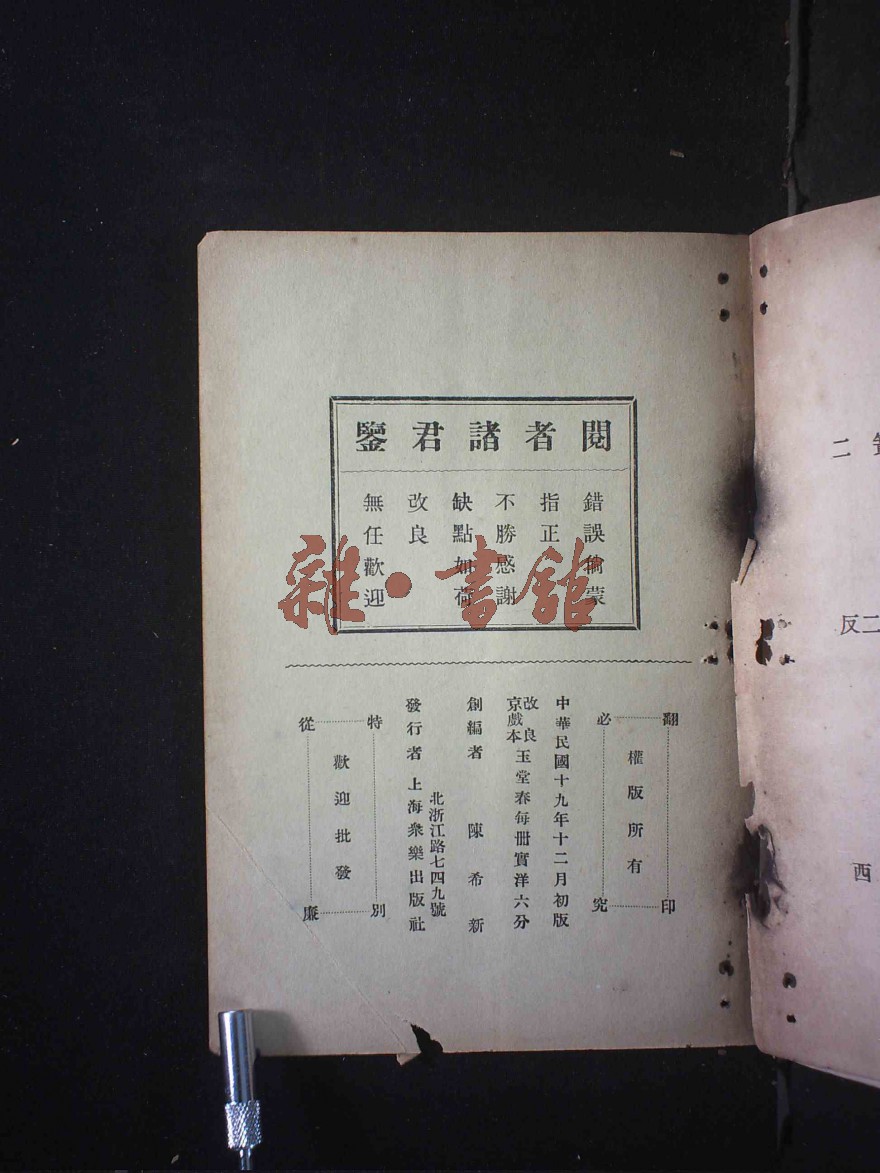 閱者諸君鑒
錯誤倘蒙
指正
不勝感謝
缺點如荷
改良
無任歡迎
雜·書館
翻印必究
權版所有
中華民國十九年十二月初版
改良京戲本玉堂春每冊實洋六分
創編者 陳希新
北浙江路七四九號
發行者 上海衆樂出版社
特別從廉
歡迎批發
二
反二
西